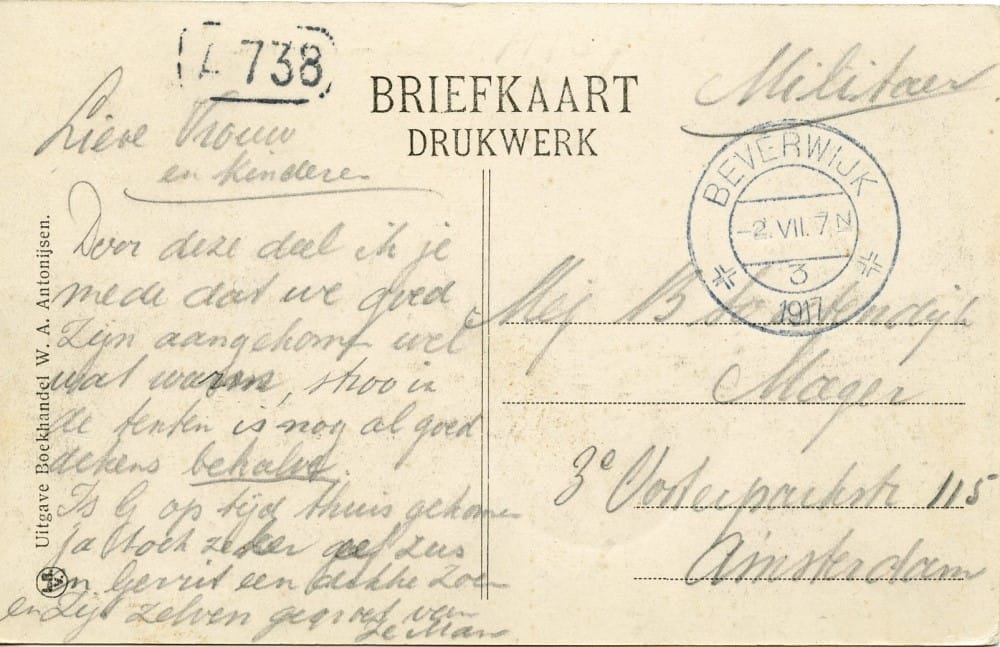 738
BRIEFKAART
DRUKWERK
Militair
Lieve Vrouw
en kinderen
Door deze deel ik je
mede dat we goed
Zijn aangekomen wel
wat warm, stroo in
de tenten is nog al goed
dekens behalve.
Is G op tijd thuis gekomen
ja toch zeker geef zus
en Gerrit een dikke zoen
en Zijt zelven gegroet van
Je Man
Uitgave Boekhandel W. A. Antonijsen.
BEVERWIJK
-2.VII.7.N
3
1917
Mej B
Mager
3e Oosterparkstr 115
Amsterdam